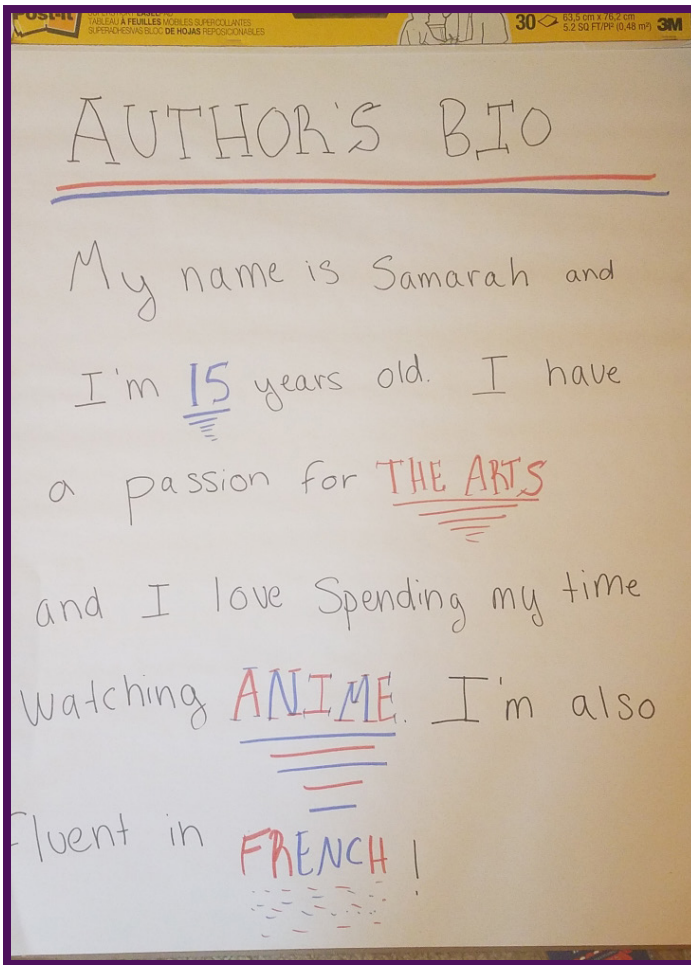 Post-it
TABLEAU À FEUILLES MOBILES SUPERCOLLANTES
SUPERADHESIVAS BLOC DE HOJAS REPOSICIONABLES
30 63,5 cm x 76,2 cm
5.2 SQ FT/PI² (0,48 m²) 3M
AUTHOR'S BIO
My name is Samarah and
I'm 15 years old. I have
a passion for THE ARTS
and I love Spending my time
watching ANIME. I'm also
fluent in FRENCH!